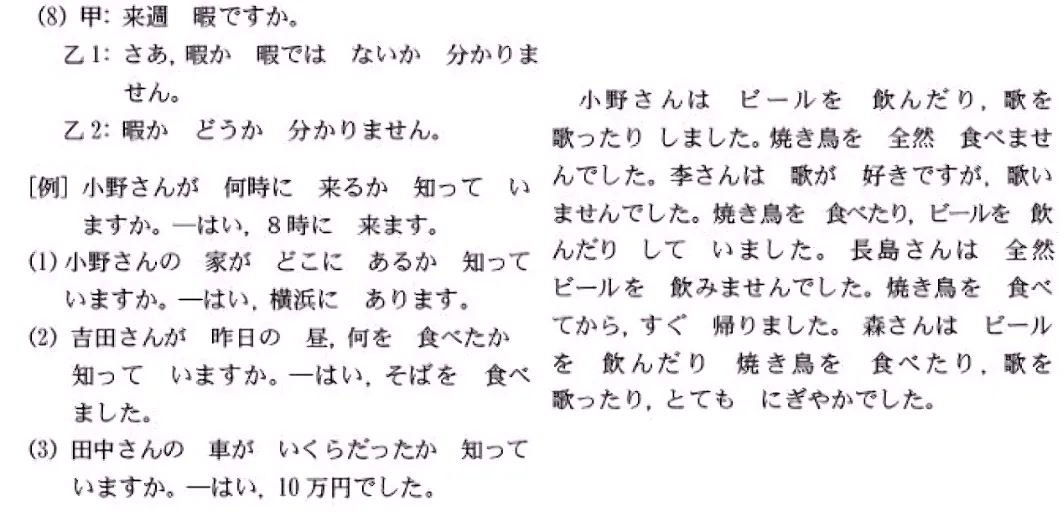 (8) 甲: 来週　暇ですか。
乙1: さあ, 暇か　暇では　ないか　分かりま
せん。
乙2: 暇か　どうか　分かりません。
[例] 小野さんが　何時に　来るか　知って　い
ますか。—はい, 8時に　来ます。
(1) 小野さんの　家が　どこに　あるか　知って
いますか。—はい, 横浜に　あります。
(2) 吉田さんが　昨日の　昼, 何を　食べたか
知って　いますか。—はい, そばを　食べ
ました。
(3) 田中さんの　車が　いくらだったか　知って
いますか。—はい, 10万円でした。
小野さんは　ビールを　飲んだり, 歌を
歌ったり しました。焼き鳥を　全然　食べませ
んでした。李さんは　歌が　好きですが, 歌い
ませんでした。焼き鳥を 食べたり, ビールを 飲
んだり　して　いました。長島さんは　全然
ビールを　飲みませんでした。焼き鳥を　食べ
てから, すぐ　帰りました。森さんは　ビール
を　飲んだり　焼き鳥を　食べたり, 歌を
歌ったり, とても　にぎやかでした。